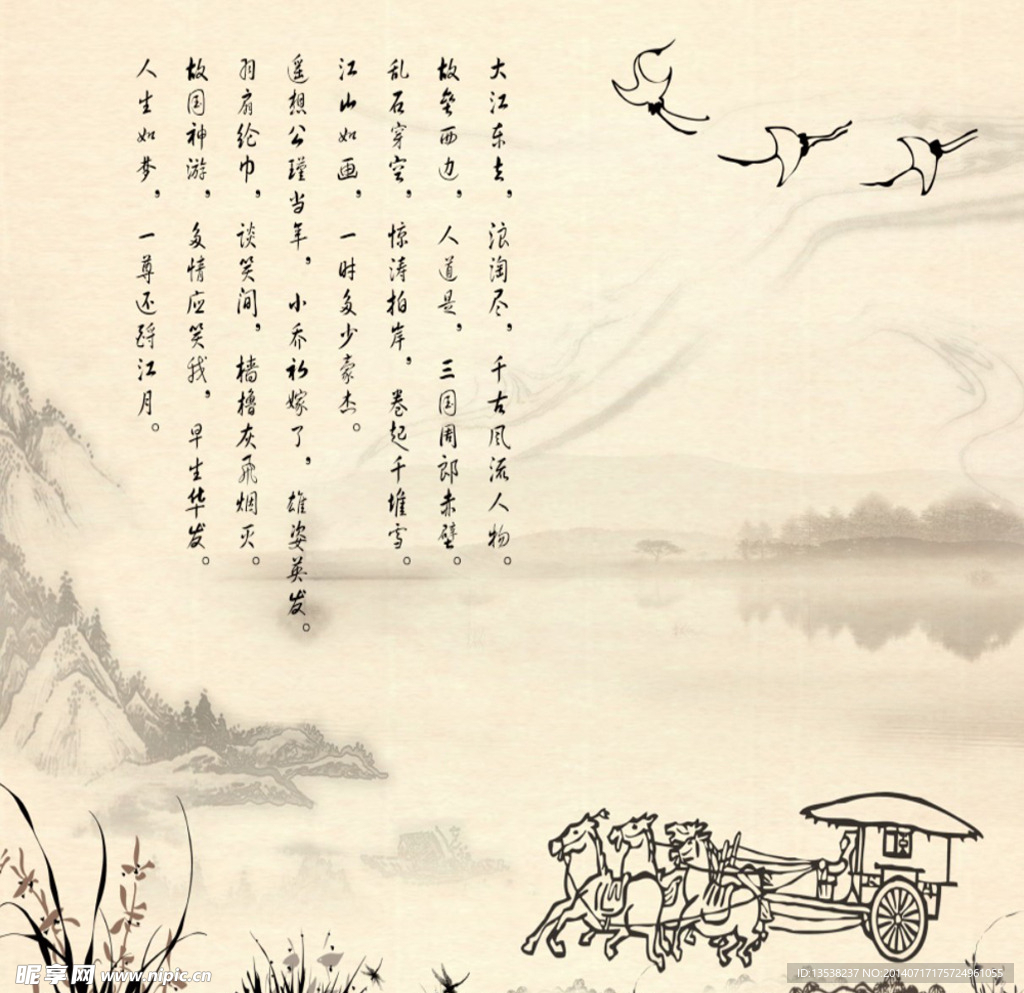 大江东去，浪淘尽，千古风流人物。
故垒西边，人道是，三国周郎赤壁。
乱石穿空，惊涛拍岸，卷起千堆雪。
江山如画，一时多少豪杰。
遥想公瑾当年，小乔初嫁了，雄姿英发。
羽扇纶巾，谈笑间，樯橹灰飞烟灭。
故国神游，多情应笑我，早生华发。
人生如梦，一尊还酹江月。
昵享网 www.nipic.cn
ID:13538237 NO:20140717175724961055